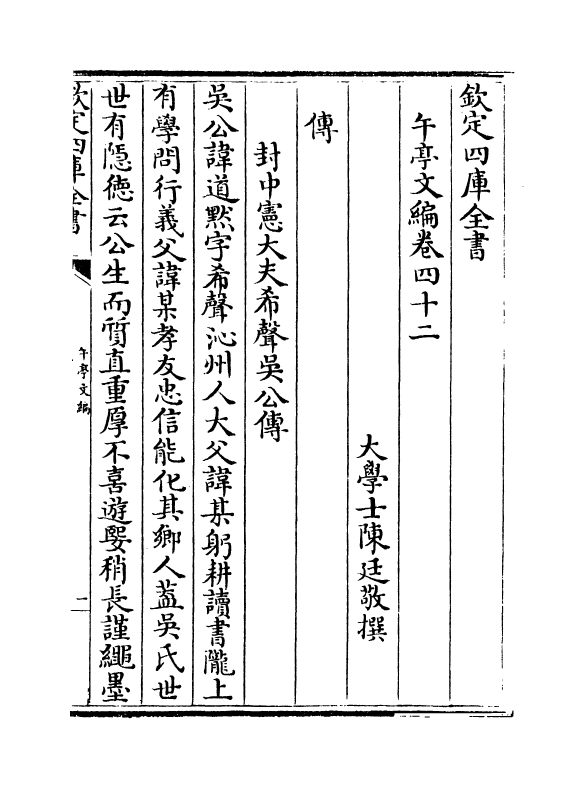 欽定四庫全書
午亭文編卷四十二
大學士陳廷敬撰
傳
封中憲大夫希聲吳公傳
吳公諱道黙字希聲沁州人大父諱某躬耕讀書隴上
有學問行義父諱某孝友忠信能化其鄉人葢吳氏世
世有隱德云公生而質直重厚不喜遊娶稍長謹繩墨
欽定四庫全書
午亭文編
一